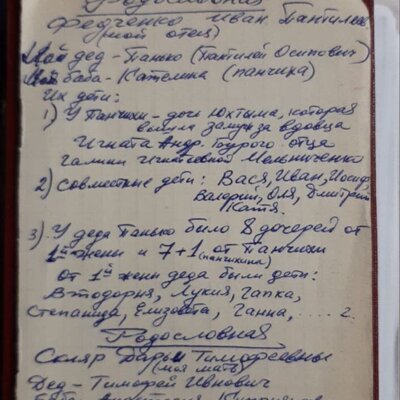 Родословная
Федченко Иван Пантилей
(мой отец)
Мой дед - Панько (Пантилей Осипович)
Моя баба - Кателина (панчиха)
Их дети:
1) У Панчихи - дочь Юхтыма, которая
вышла замуж за вдовца
Игната Андр. отца
Галины Игнатьевной Мельниченко
2) Совместные дети: Вася, Иван, Иосиф,
Валерий, Оля, Дмитрий
Катя.
3) У деда Панько было 8 дочерей от
1й жени и 7+1 от Панчихи
(панчихина)
От 1й жени деда были дети:
Втодорня, Лукия, Гапка,
Степанида, Елизовта, Ганна, ..... 2.
Родословная
Скляр Дарьи Тимофеевны
(моя мать)
Дед - Тимофей Ивнович
Баба -